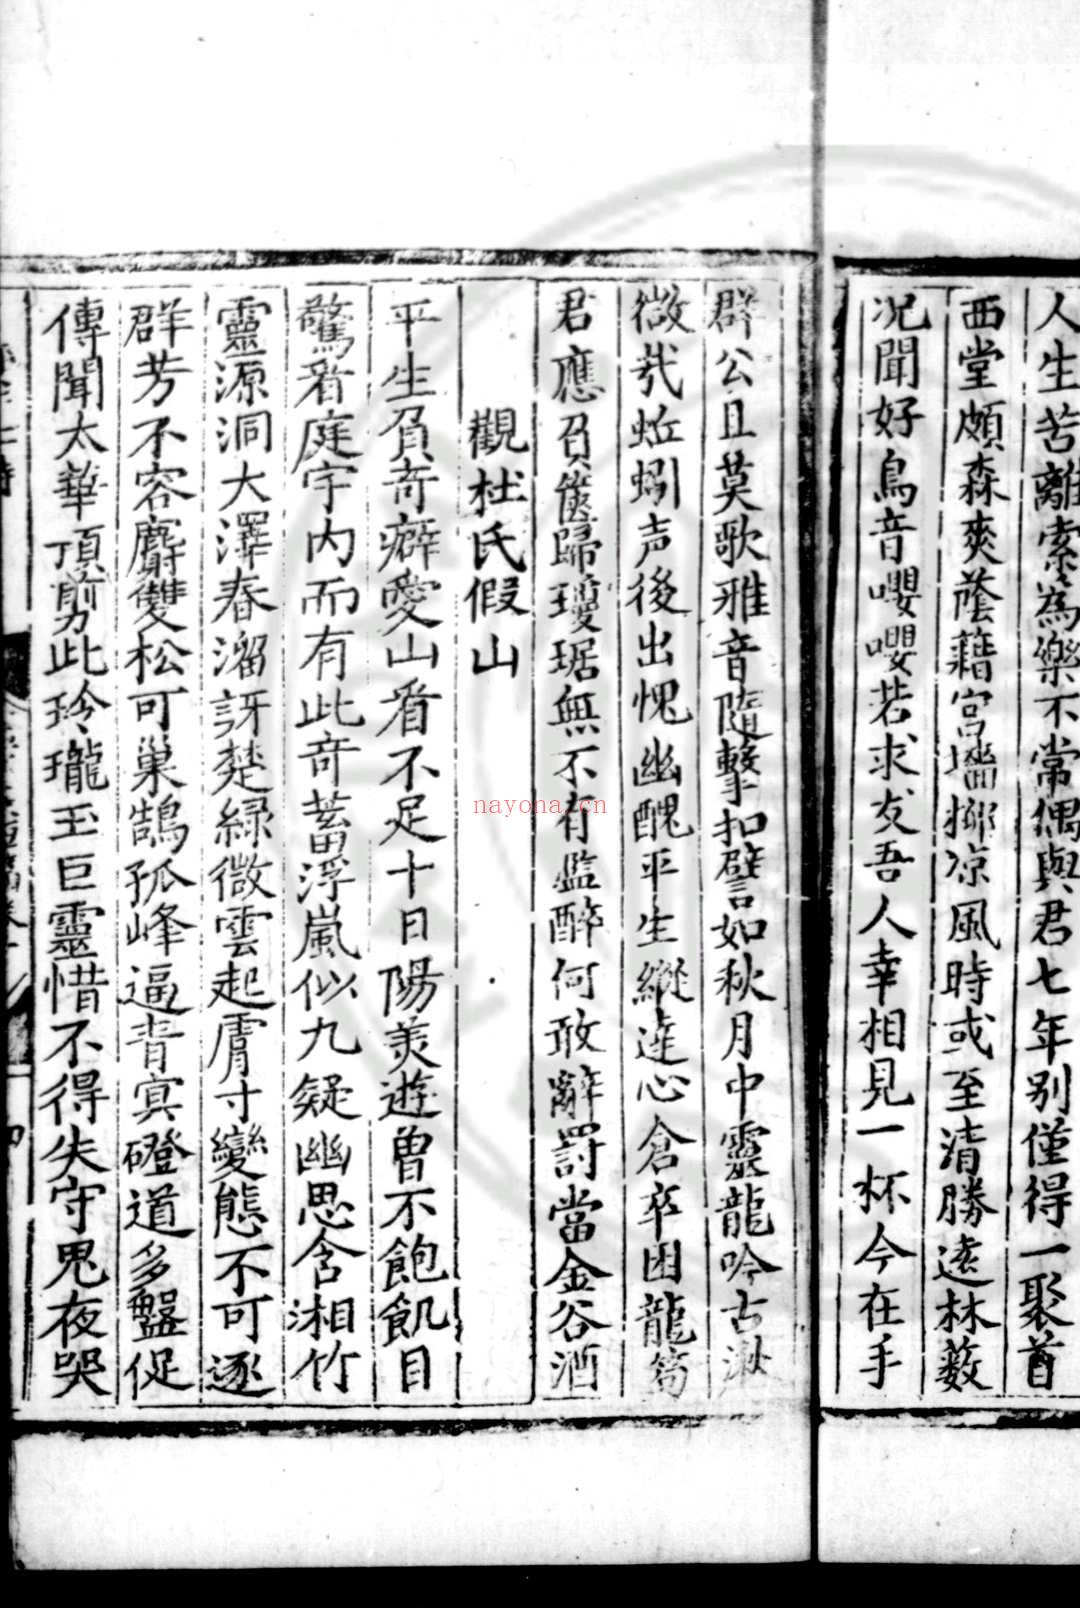 人生苦離索為樂不常偶與君七年别僅得一聚首
西堂頗森爽蔭藉宫墻柳凉風時或至清勝逺林薮
况聞好鳥音嚶嚶若求友吾人幸相見一杯今在手
群公且莫歌雅音隨擊扣譬如秋月中靈龍吟古湫
微㢤蚯蚓声後出愧幽醜平生縱達心倉卒困龍
君應召簴歸瓊琚無不有監醉何敢辭罰當金谷酒
觀杜氏假山
平生負竒癖愛山看不足十日陽羡遊曾不飽飢目
驚看庭宇内而有此竒蓄浮嵐似九疑幽思含湘竹
靈源洞大澤春溜訝楚緑微雲起膚寸變態不可逐
群芳不容麝雙松可巢鵠孤峰逼青冥磴道多盤促
傳聞太華頂剪此玲瓏玉巨靈惜不得失守鬼夜哭
nayona.cn